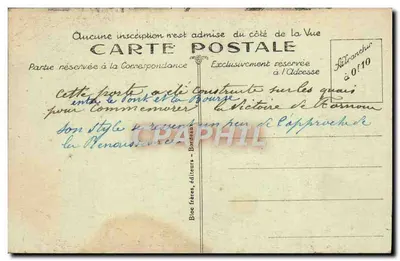 Aucune inscription n'est admise du côté de la Vue
CARTE POSTALE
Partie réservée à la Correspondance
Exclusivement réservée
à l'Adresse
Affranchir
à 0f10
Cette porte a été construite sur les quais
entre le Pont et la Bourse
pour commémorer la Victoire de Fornoue
son style se un peu de l'approche de
la Renaissance
CPARAMA
Bloc frères, éditeurs - Bordeaux